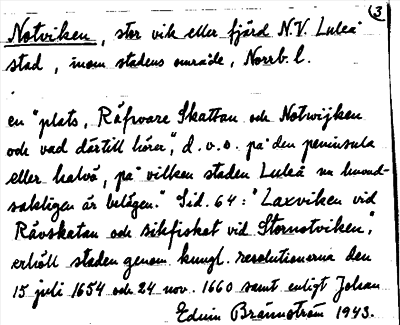 3
Notviken, stor vik eller fjärd N.V. Luleå
stad, inom stadens område, Norrb. l.
en "plats, Räfwore Skattan och Notwijken
och vad därtill hörer", d.v.o. på den peninsula
eller halvö, på vilken staden Luleå nu huvud-
sakligen är belägen." Sid. 64: "Laxviken vid
Rävskatan och sikfisket vid Stornotviken",
erhöll staden genom kungl. resolutionerna den
15 juli 1654 och 24 nov. 1660 samt enligt Johan
Edvin Brännström 1943.